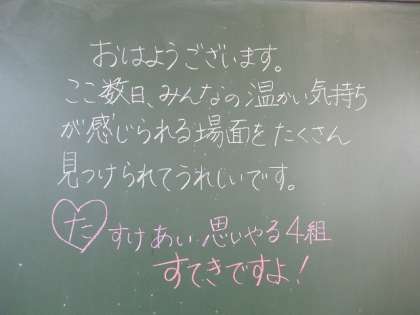 おはようございます。
ここ数日、みんなの温かい気持ち
が感じられる場面をたくさん
見つけられてうれしいです。
たすけあい 思いやる4組
すてきですよ！